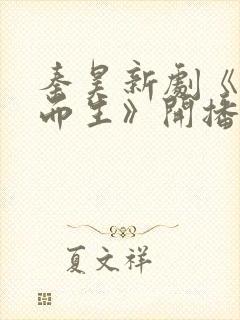 秦昊新劇《
而生》開播
夏文祥